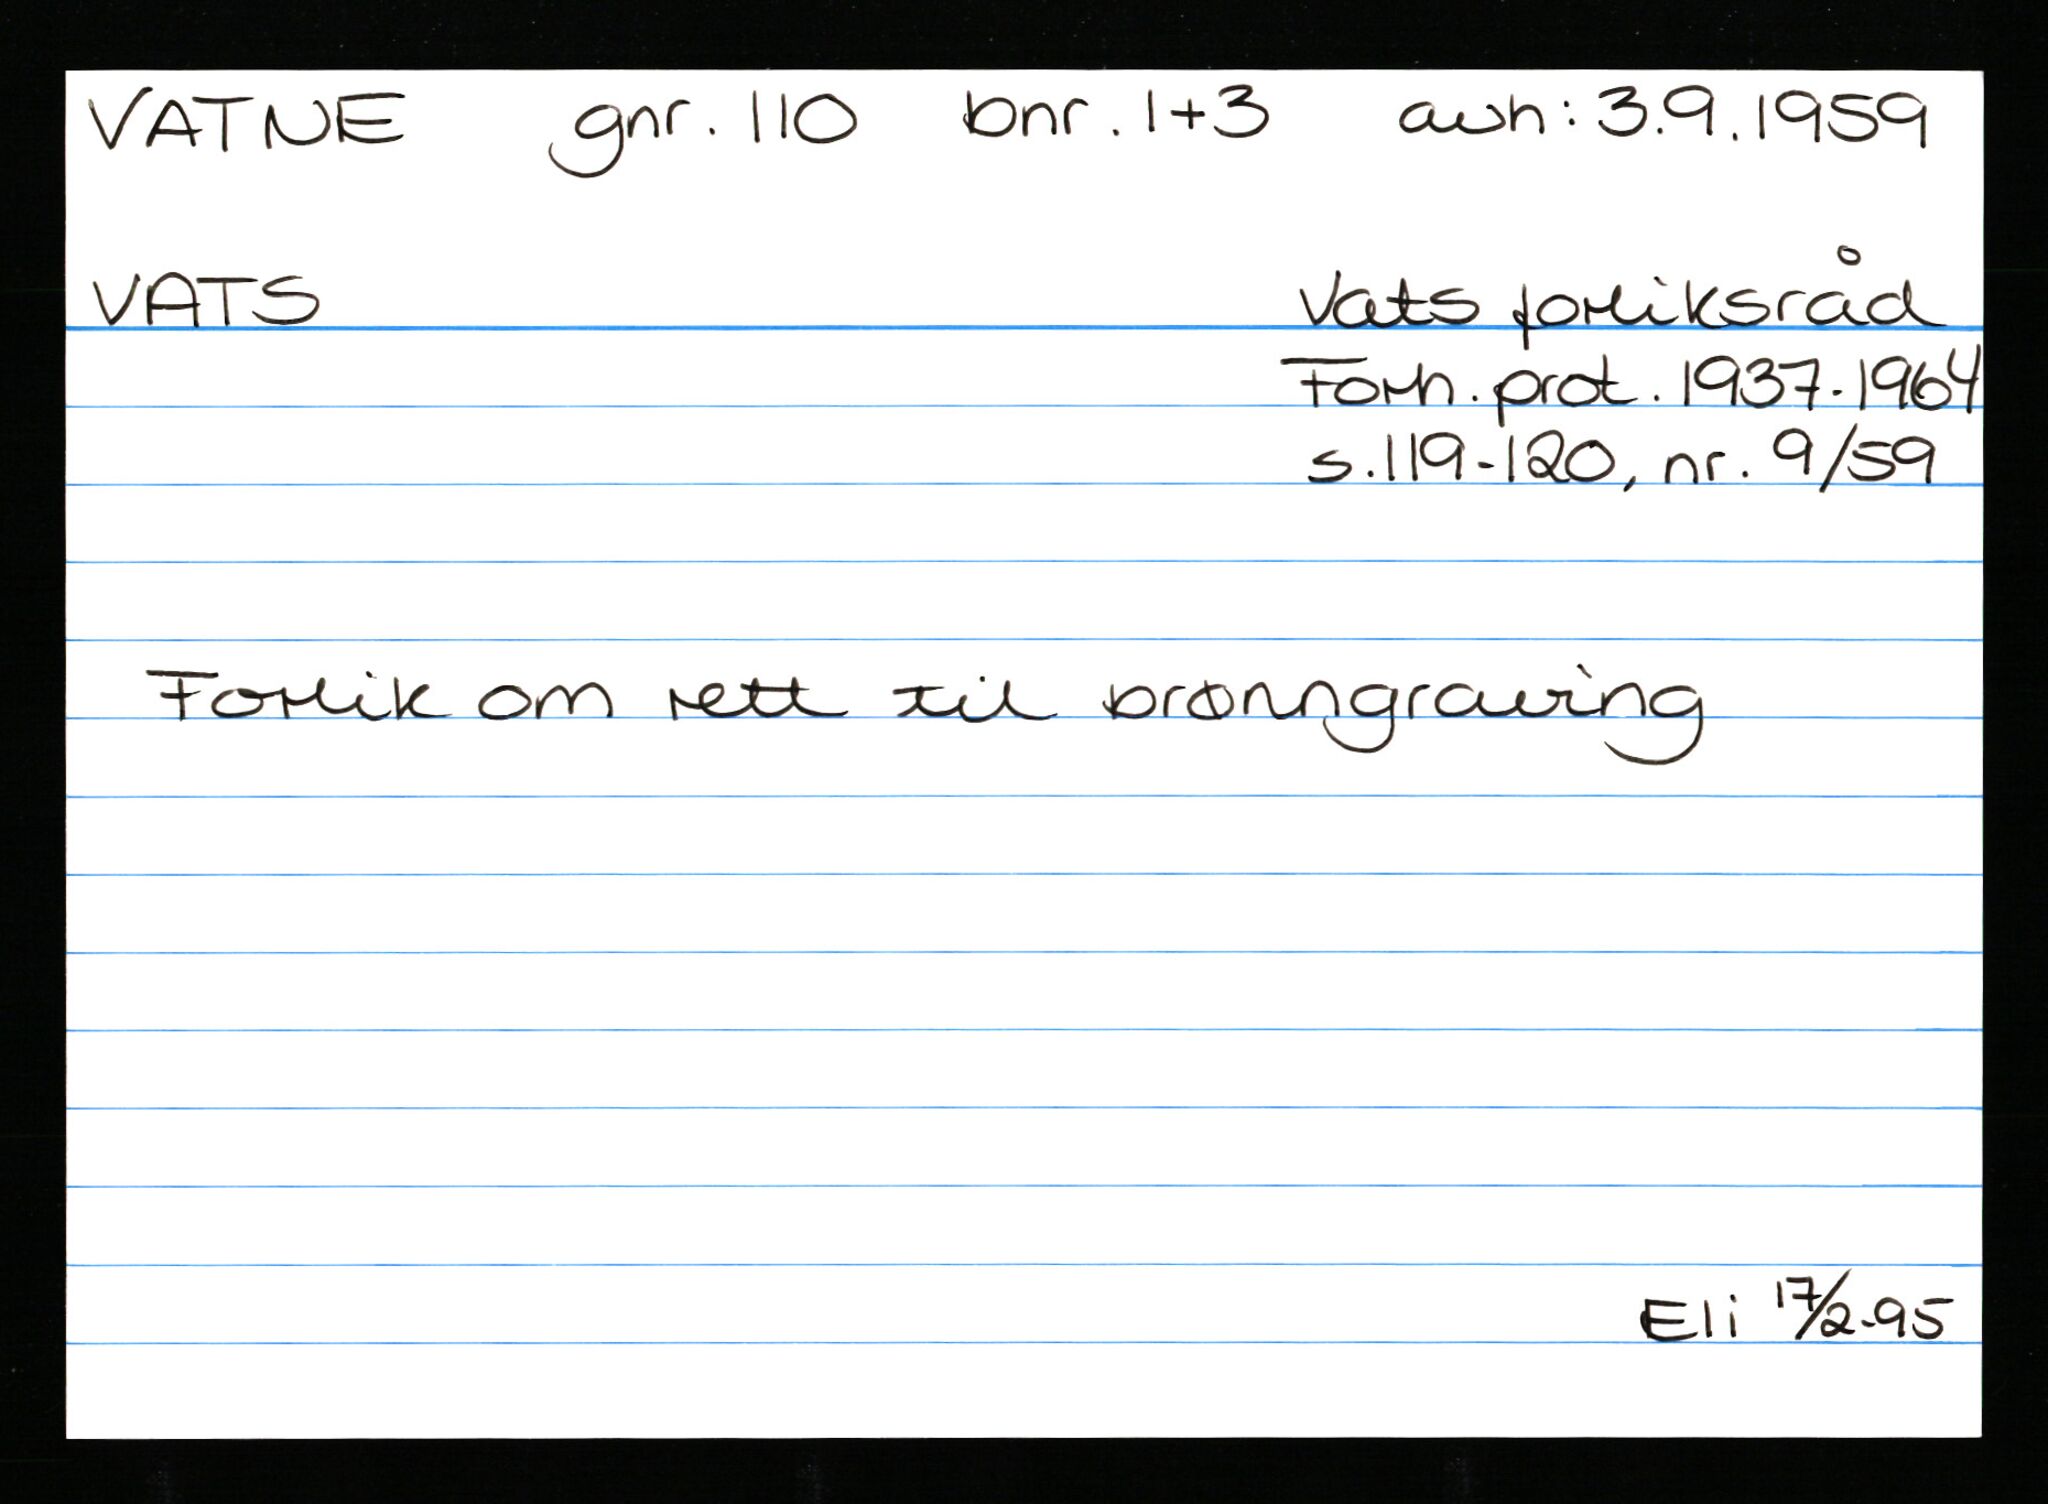 VATNE gnr. 110 bnr. 1+3 avh: 3.9.1959
VATS Vats forliksråd
Forh. prot. 1937-1964
s.119-120, nr. 9/59
Forlik om rett til brønngraving
Eli 17/2-95